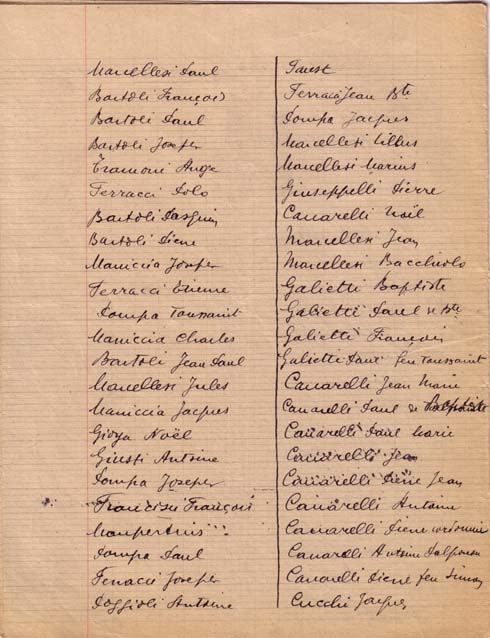 Marcellesi Paul
Bartoli François
Bartoli Paul
Bartoli Joseph
Tramoni Ange
Ferracci Polo
Bartoli Pasquin
Bartoli Pierre
Maniccia Joseph
Ferracci Etienne
Pompa Toussaint
Maniccia Charles
Bartoli Jean Paul
Marcellesi Jules
Maniccia Jacques
Gioya Noël
Giusti Antoine
Pompa Joseph
François
Maupertuis
Pompa Paul
Ferracci Joseph
Poggioli Antoine
Ferracci Jean Bte
Pompa Jacques
Marcellesi
Marcellesi Marius
Giuseppelli Pierre
Canarelli Noël
Marcellesi Jean
Marcellesi Bacchiolo
Galietti Baptiste
Galietti Paul
Galietti François
Galietti Paul feu Toussaint
Canarelli Jean Marie
Canarelli Paul de Baptiste
Canarelli Paul Marie
Canarelli Jean
Canarelli Pierre Jean
Canarelli Antoine
Canarelli Pierre
Canarelli Antoine
Canarelli Pierre feu Simon
Cucchi Jacques